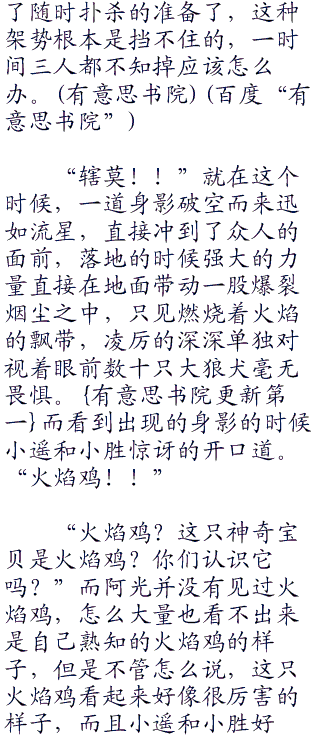 了随时扑杀的准备了，这种
架势根本是挡不住的，一时
间三人都不知掉应该怎么
办。(有意思书院) (百度“有
意思书院”)
“辖莫！！”就在这个
时候，一道身影破空而来迅
如流星，直接冲到了众人的
面前，落地的时候强大的力
量直接在地面带动一股爆裂
烟尘之中，只见燃烧着火焰
的飘带，凌厉的深深单独对
视着眼前数十只大狼犬毫无
畏惧。{有意思书院更新第
一}而看到出现的身影的时候
小遥和小胜惊讶的开口道。
“火焰鸡！！”
“火焰鸡？这只神奇宝
贝是火焰鸡？你们认识它
吗？”而阿光并没有见过火
焰鸡，怎么大量也看不出来
是自己熟知的火焰鸡的样
子，但是不管怎么说，这只
火焰鸡看起来好像很厉害的
样子，而且小遥和小胜好